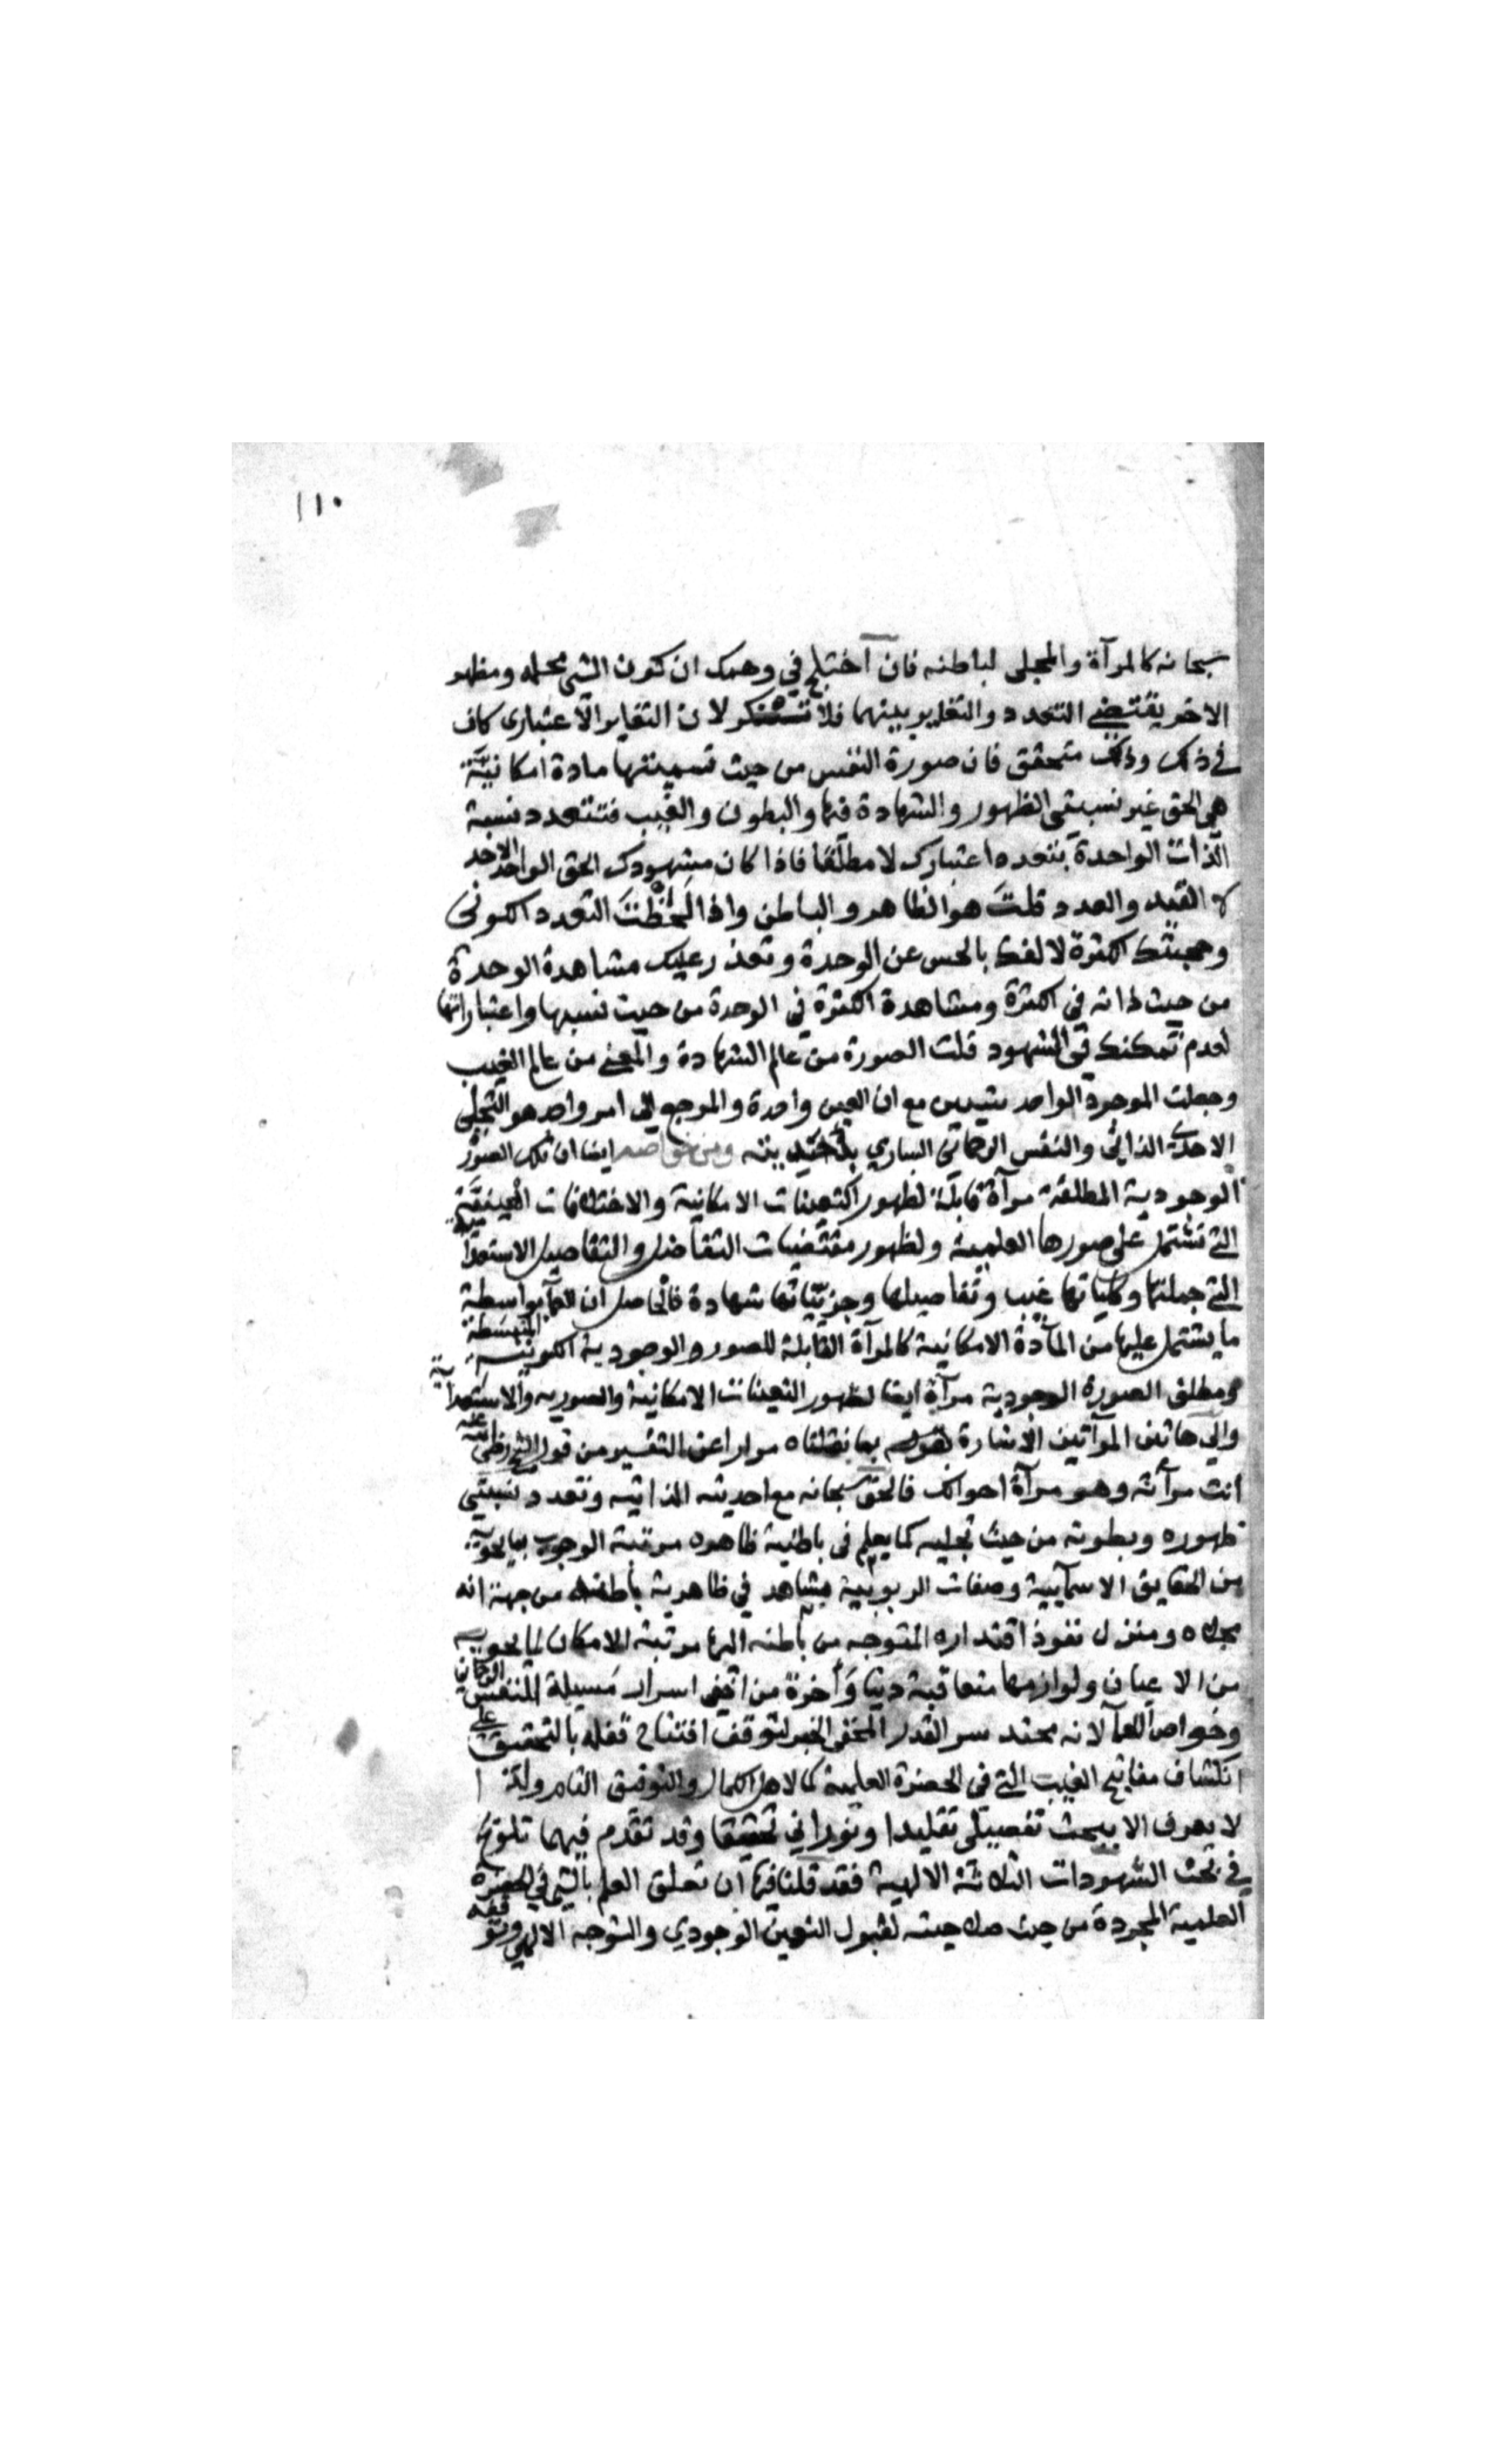 ١١٠
سبحانه كالمرآة والمجلى لباطنه فان اختلج في وهمك ان كون الشي محلا ومظهر
الاخر يقتضي التعدد والتغاير بينهما فلا لان التغاير الاعتباري كاف
في ذلك وذلك متحقق فان صورة النفس من حيث تسميتها مادة امكانية
هي الحق غير نسبتي الظهور والشهادة فيها والبطون والغيب فتتعدد نسبة
الذات الواحدة بتعدد اعتبارك لا مطلقا فاذا كان مشهودك الحق الواحد الاحد
لا القيد والعدد قلت هو الظاهر والباطن واذا لحظت التعدد الكوني
وحجبتك الكثرة بالحس عن الوحدة وتعذر عليك مشاهدة الوحدة
من حيث ذاته في الكثرة ومشاهدة الكثرة في الوحدة من حيث نسبها واعتباراتها
لعدم تمكنك في الشهود قلت الصورة من عالم الشهادة والمعنى من عالم الغيب
وجعلت الموجود الواحد شيئين مع ان العين واحدة والمرجع الى امر واحد هو التجلي
الاحدي الذاتي والنفس الرحماني الساري ومن خواصه ايضا ان تلك الصور
الوجودية المطلقة مرآة قابلة لظهور التعينات الامكانية والاختلافات
التي تشتمل على صورها العلمية ولظهور مقتضيات التفاضل والتفاصيل الاستعدادية
التي جملتها وكلياتها غيب وتفاصيلها وجزئياتها شهادة فالحاصل ان العما بواسطة
ما يشتمل عليها من المادة الامكانية كالمرآة القابلة للصور الوجودية الكونية المنبسطة
ومطلق الصورة الوجودية مرآة ايضا لظهور التعينات الامكانية والصورية والاستعدادية
والى هاتين المرآتين الاشارة بما نقلناه مرارا عن التفسير من قول الشيخ رضي الله عنه
انت مرآته وهو مرآة احوالك فالحق سبحانه مع احديته الذاتية وتعدد نسبتي
ظهوره وبطونه من حيث تجليه كما يعلم في باطنية ظاهره مرتبة الوجوب بما يحويه
من الحقايق الاسمآيية وصفات الربوبية يشاهد في ظاهرية باطنه من جهة انه
مجلاه ومنزل نفوذ اقتداره المتوجه من باطنه اليها مرتبة الامكان لما يحويه
من الاعيان ولوازمها متعاقبة دنيا وأخرة من اخفى اسرار مسيلة النفس الرحماني
وخواص العمآ لانه محتد سر القدر المخفى لتوقف افتتاح قفله بالتحقيق على
انكشاف مفاتيح الغيب التي في الحضرة العلمية كما لاهل الكمال والتوفيق التام
لا يعرف الا ببحث تفصيلي تقليدا ونوراني تحقيقا وقد تقدم فيهما
في بحث الشهودات الثلاثة الالهية فقد قلنا فيها ان تعلق العلم بالشي في الحضرة
العلمية المجردة من حيث صلاحيته لقبول التعين الوجودي والتوجه الالهي وتوقفه